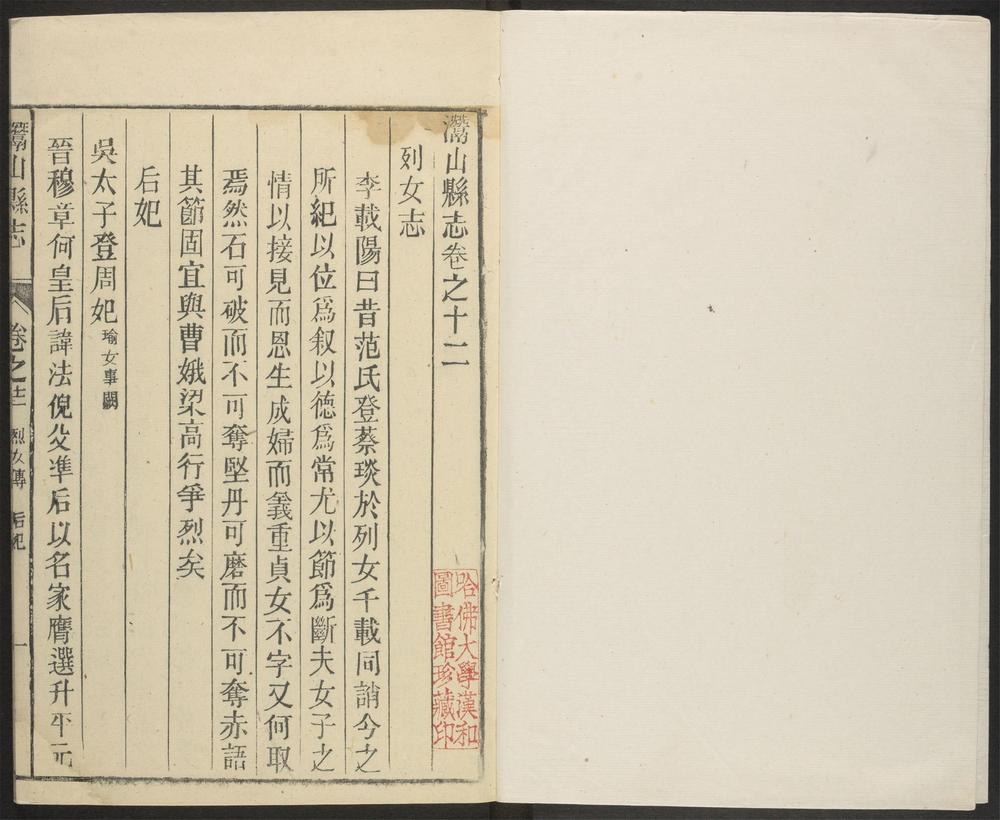 灊山縣志卷之十二
列女志
李載陽曰昔范氏登蔡琰於列女千載同誚今之
所紀以位爲叙以德爲常尤以節爲斷夫女子之
情以接見而恩生成婦而義重貞女不字又何取
焉然石可破而不可奪堅丹可磨而不可奪赤語
其節固宜與曹娥梁高行爭烈矣
后妃
吳太子登周妃瑜女事闕
晉穆章何皇后諱法倪父準后以名家膺選升平元
灊山縣志 卷之十二 烈女傳 后妃 一
哈佛大學漢和
圖書館珍藏印